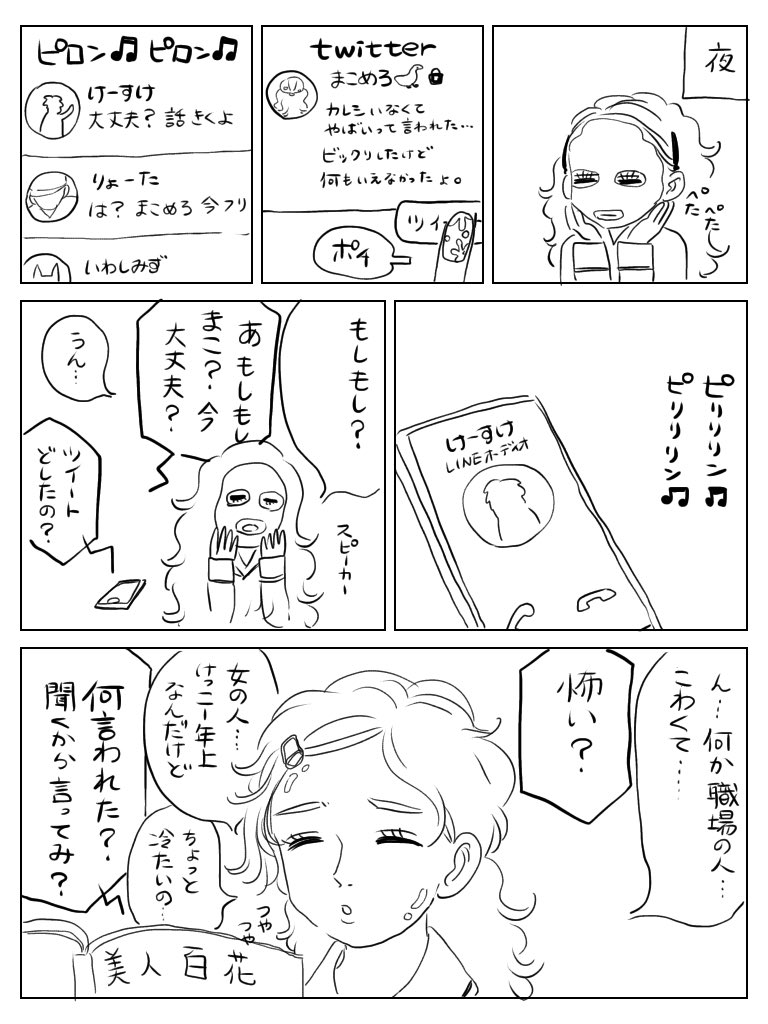 夜
ぺた
ぺた
twitter
まこめろ
カレシいなくて
やばいって言われた…
ビックリしたけど
何もいえなかったょ。
ツイート
ポチ
ピロン♫ ピロン♫
けーすけ
大丈夫? 話きくよ
りょーた
は? まこめろ 今フリ
いわしみず
ピリリリン♫
ピリリリン♫
けーすけ
LINEオーディオ
もしもし?
あ もしもし
まこ? 今
大丈夫?
うん…
スピーカー
ツイート
どしたの?
ん… 何か職場の人…
こわくて……
怖い?
女の人…
けっこー年上
なんだけど
ちょっと
冷たいの…
何言われた?
聞くから言ってみ?
つや
つや
美人百花